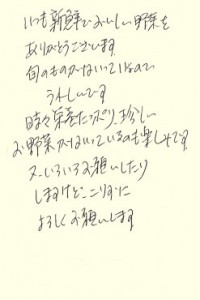 いつも新鮮でおいしい野菜を
ありがとうございます
旬のものがはいっているので
うれしいです
時々 葉巻たっぷり、珍しい
お野菜がはいっているのも楽しみです
又、いろいろお願いしたり
しますけど、こりずに
よろしくお願いします